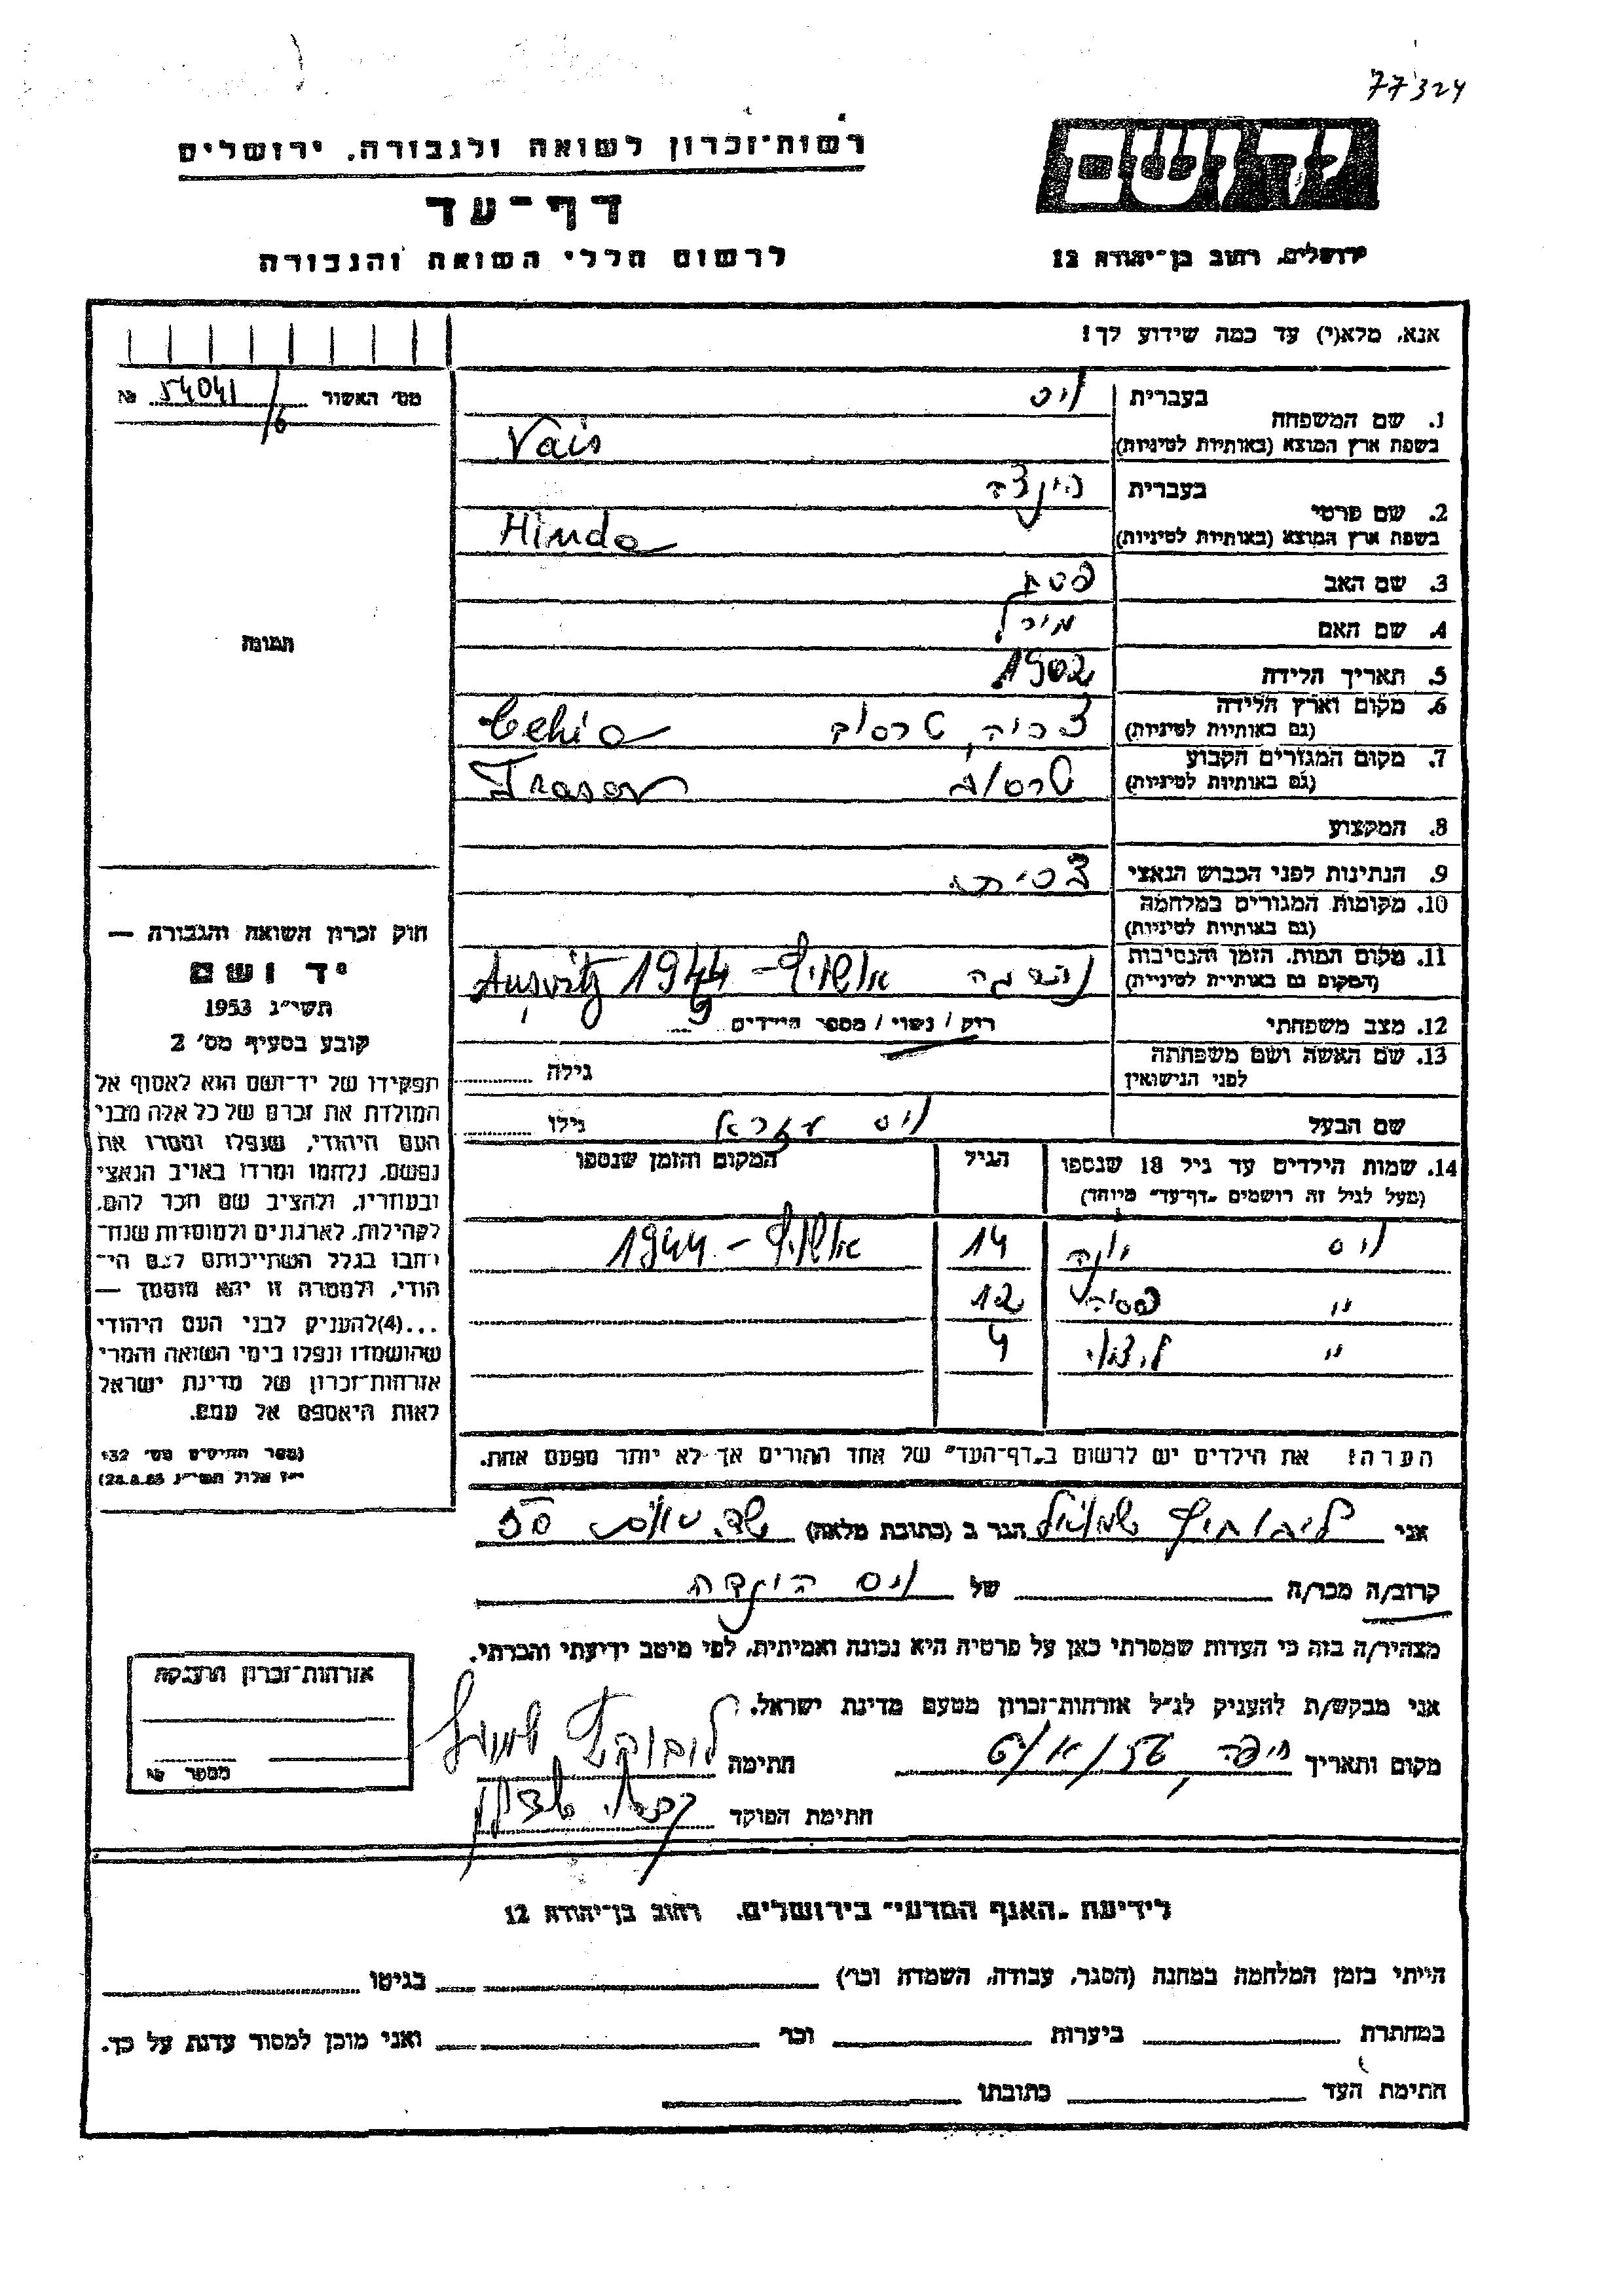 77324
רשות-זכרון לשואה ולגבורה, ירושלים
יד ושם
דף-עד
לרשום חללי השואה והגבורה
ירושלים, רחוב בן-יהודה 12
אנא, מלא(י) עד כמה שידוע לך!
מס' האשור 54041/6 №
1. שם המשפחה
בעברית ויס
בשפת ארץ המוצא (באותיות לטיניות) Vais
2. שם פרטי
בעברית
בשפת ארץ המוצא (באותיות לטיניות) Hinda
3. שם האב פסח
4. שם האם מירל
5. תאריך הלידה 1902
6. מקום וארץ הלידה
(גם באותיות לטיניות) צכיה, טרסוב Cehia
7. מקום המגורים הקבוע
(גם באותיות לטיניות) טרסוב Trasov
8. המקצוע
9. הנתינות לפני הכבוש הנאצי צכית
10. מקומות המגורים במלחמה
(גם באותיות לטיניות)
11. מקום המות, הזמן והנסיבות
(המקום גם באותיות לטיניות) נהרגה אושויץ - 1944 Ausvitz
12. מצב משפחתי רוק / נשוי / מספר הילדים 9
13. שם האשה ושם משפחתה
לפני הנישואין
גילה
שם הבעל ויס עזרא גילו
14. שמות הילדים עד גיל 18 שנספו
(מעל לגיל זה רושמים "דף-עד" מיוחד)
הגיל
המקום והזמן שנספו
ויס יונה 14 אושויץ - 1944
" 12
" 4
הערה! את הילדים יש לרשום ב"דף-העד" של אחד ההורים אך לא יותר מפעם אחת.
תמונה
חוק זכרון השואה והגבורה —
יד ושם
תשי"ג 1953
קובע בסעיף מס' 2
תפקידו של יד-ושם הוא לאסוף אל
המולדת את זכרם של כל אלה מבני
העם היהודי, שנפלו ומסרו את
נפשם, נלחמו ומרדו באויב הנאצי
ובעוזריו, ולהציב שם וזכר להם,
לקהילות, לארגונים ולמוסדות שנח-
רבו בגלל השתייכותם לעם הי-
הודי, ולמטרה זו יהא מוסמך —
...(4)להעניק לבני העם היהודי
שהושמדו ונפלו בימי השואה והמרי
אזרחות-זכרון של מדינת ישראל
לאות היאספם אל עמם.
(ספר החוקים מס' 132
י"ז אלול תשי"ג 28.8.53)
אני ליבוביץ שמואל הגר ב (כתובת מלאה) 50
קרוב/ה מכר/ה של ויס הינדה
מצהיר/ה בזה כי העדות שמסרתי כאן על פרטיה היא נכונה ואמיתית, לפי מיטב ידיעתי והכרתי.
אני מבקש/ת להעניק לנ"ל אזרחות-זכרון מטעם מדינת ישראל.
מקום ותאריך חיפה, חתימה ליבוביץ שמואל
חתימת הפוקד
אזרחות-זכרון הוענקה
מספר №
לידיעת "האגף המדעי" בירושלים, רחוב בן-יהודה 12
הייתי בזמן המלחמה במחנה (הסגר, עבודה, השמדה וכו') בגיטו
במחתרת ביערות וכו' ואני מוכן למסור עדות על כך.
חתימת העד כתובתו